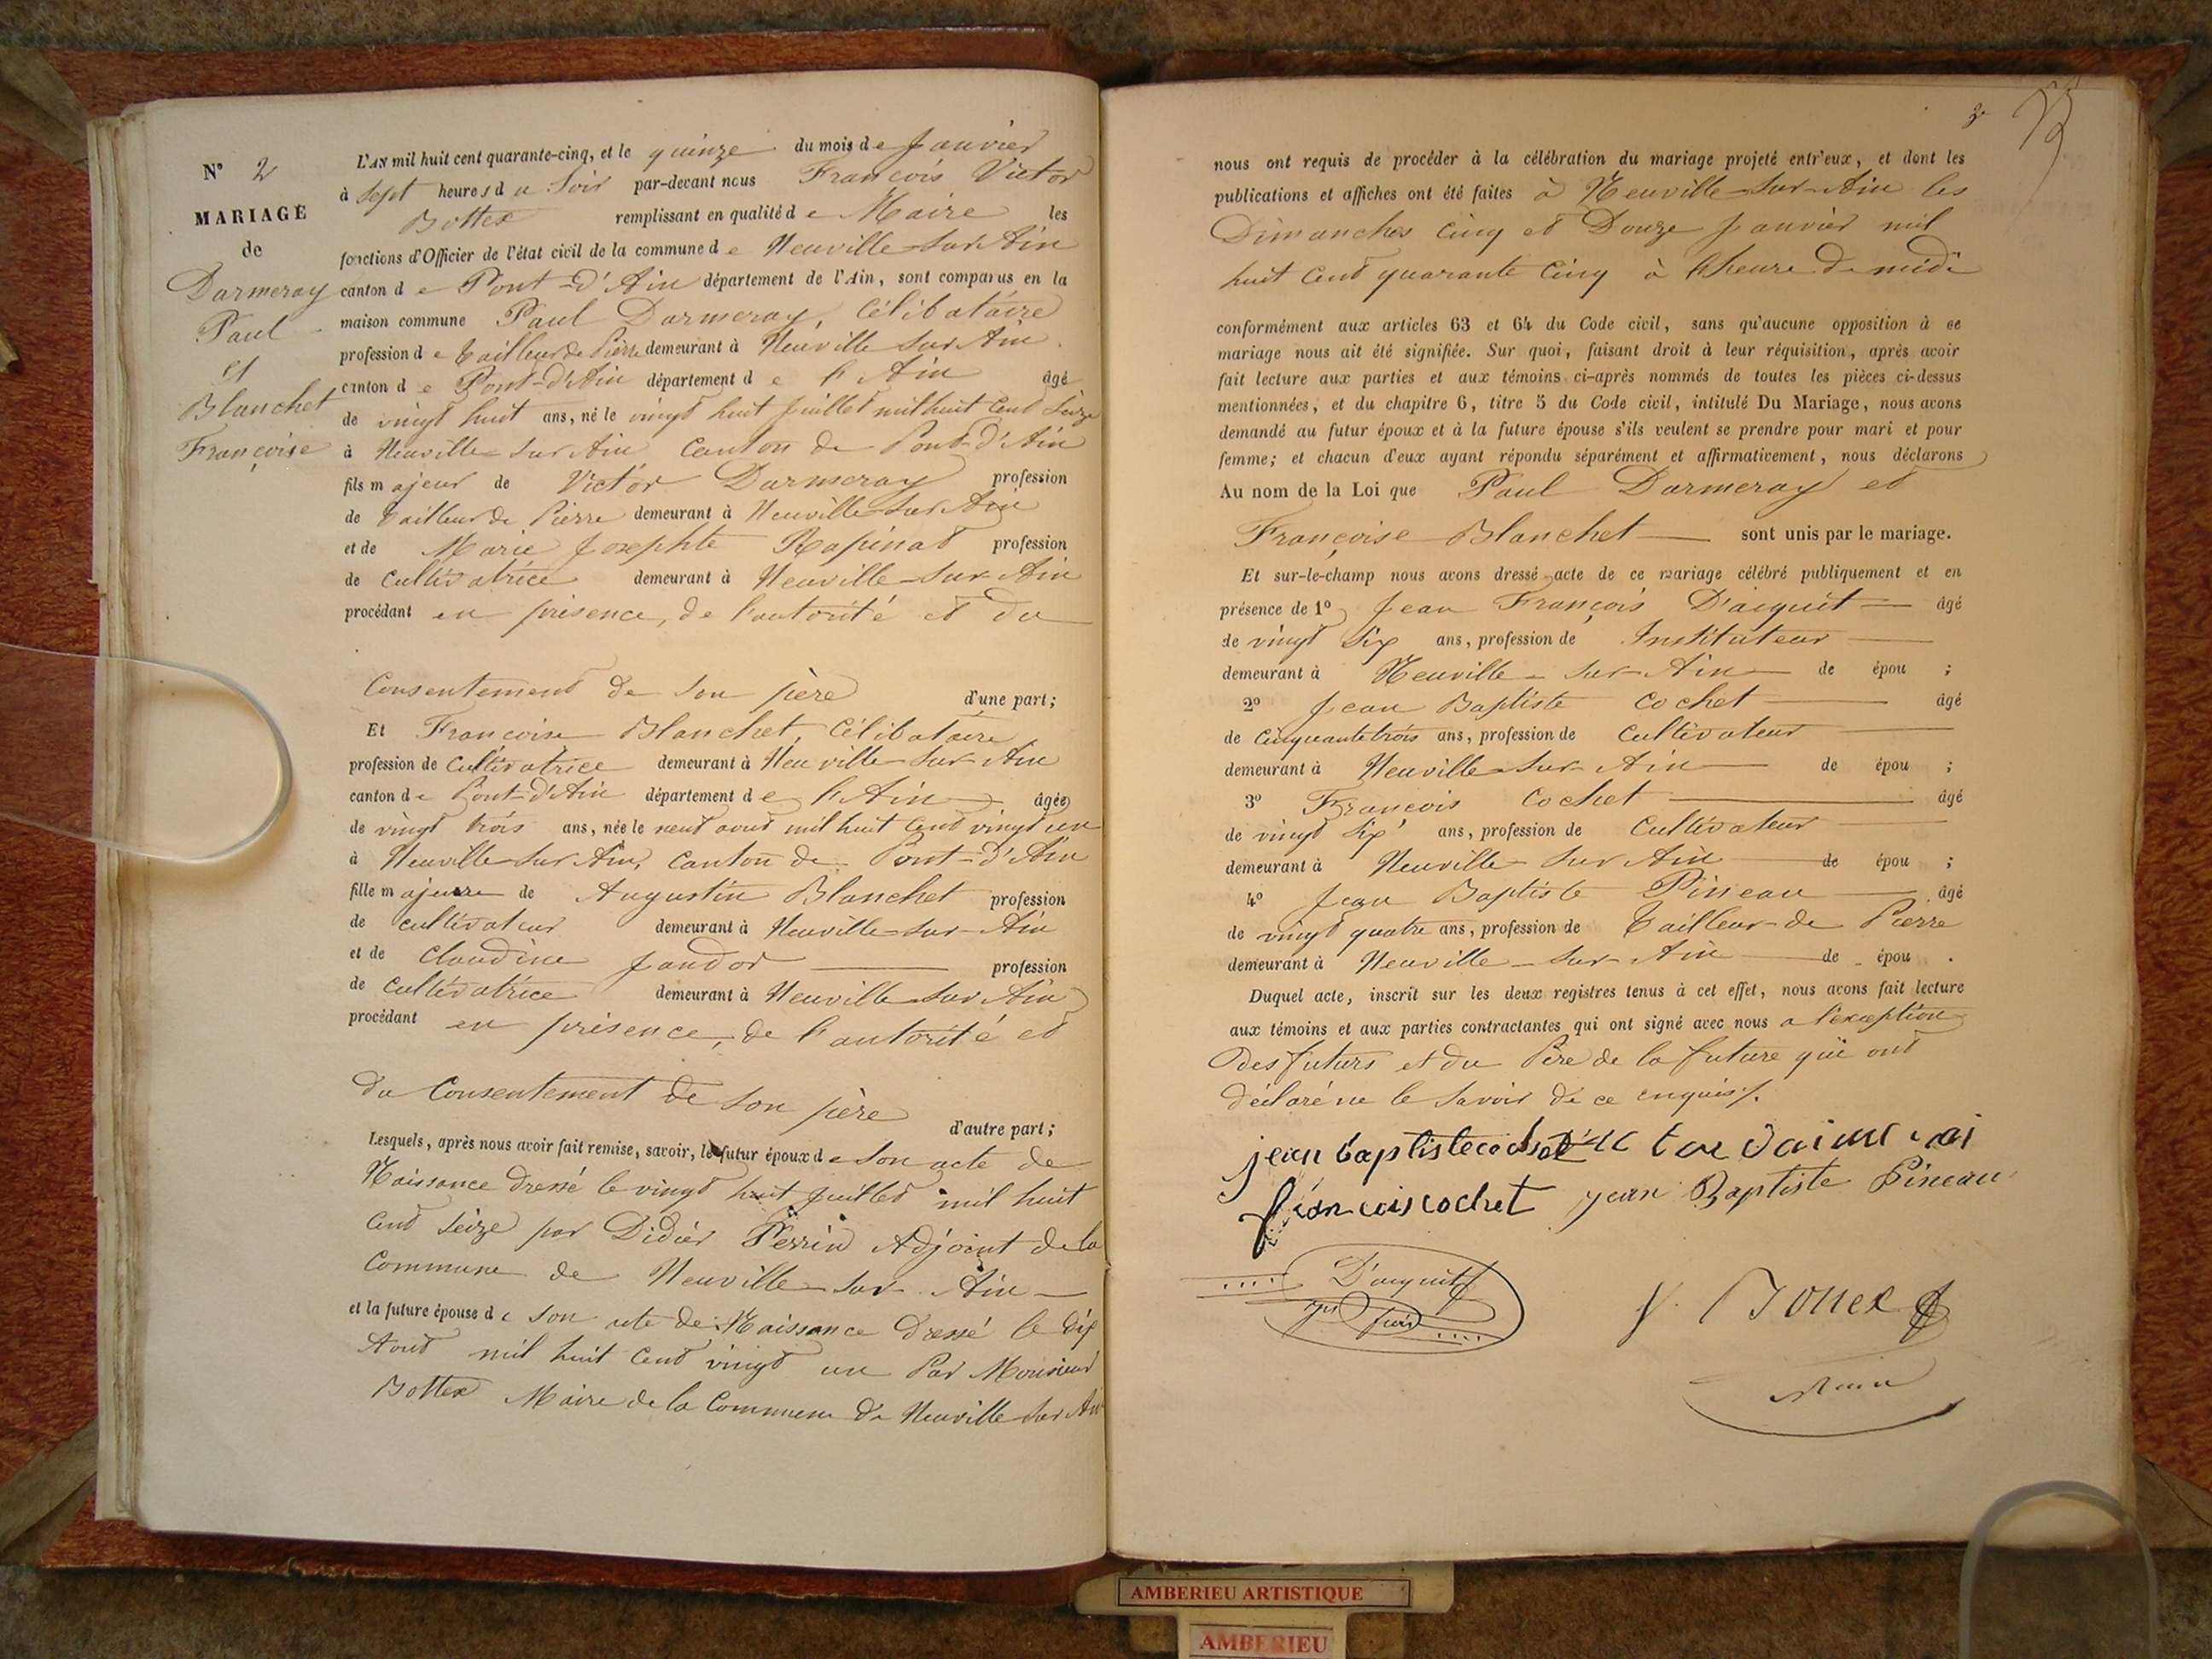 N° 2
MARIAGE
de
Darmeray
Paul
et
Blanchet
Françoise
L'AN mil huit cent quarante-cinq, et le quinze du mois de Janvier
à Sept heures du Soir par-devant nous François Victor
Bottex remplissant en qualité de Maire les
fonctions d'Officier de l'état civil de la commune de Neuville-sur-Ain
canton de Pont-d'Ain département de l'Ain, sont comparus en la
maison commune Paul Darmeray, Célibataire
profession de tailleur de Pierre demeurant à Neuville sur Ain
canton de Pont-d'Ain département de l'Ain âgé
de vingt huit ans, né le vingt huit Juillet mil huit Cent Seize
à Neuville-sur Ain Canton de Pont-d'Ain
fils majeur de Victor Darmeray profession
de tailleur de Pierre demeurant à Neuville-sur Ain
et de Marie Josephte Rapinat profession
de Cultivatrice demeurant à Neuville-sur-Ain
procédant en présence, de l'autorité et du
Consentement de son père d'une part;
Et Françoise Blanchet, Célibataire
profession de Cultivatrice demeurant à Neuville-sur-Ain
canton de Pont-d'Ain département de l'Ain âgée
de vingt trois ans, née le neuf aout mil huit Cent vingt un
à Neuville-sur Ain, Canton de Pont-d'Ain
fille majeure de Augustin Blanchet profession
de cultivateur demeurant à Neuville-sur-Ain
et de Claudine Jandot profession
de Cultivatrice demeurant à Neuville sur Ain
procédant en présence, de l'autorité et
du Consentement de son père d'autre part;
Lesquels, après nous avoir fait remise, savoir, le futur époux de son acte de
Naissance dressé le vingt huit Juillet mil huit
Cent Seize par Didier Perrin Adjoint de la
Commune de Neuville-sur-Ain
et la future épouse de son acte de Naissance dressé le dix
Aout mil huit Cent vingt un Par Monsieur
Bottex Maire de la Commune de Neuville sur Ain
3
nous ont requis de procéder à la célébration du mariage projeté entr'eux, et dont les
publications et affiches ont été faites à Neuville-sur-Ain les
Dimanches Cinq et Douze Janvier mil
huit Cent quarante Cinq à l'heure de midi
conformément aux articles 63 et 64 du Code civil, sans qu'aucune opposition à ce
mariage nous ait été signifiée. Sur quoi, faisant droit à leur réquisition, après avoir
fait lecture aux parties et aux témoins ci-après nommés de toutes les pièces ci-dessus
mentionnées, et du chapitre 6, titre 5 du Code civil, intitulé Du Mariage, nous avons
demandé au futur époux et à la future épouse s'ils veulent se prendre pour mari et pour
femme; et chacun d'eux ayant répondu séparément et affirmativement, nous déclarons
Au nom de la Loi que Paul Darmeray et
Françoise Blanchet sont unis par le mariage.
Et sur-le-champ nous avons dressé acte de ce mariage célébré publiquement et en
présence de 1° Jean François D'aiguit âgé
de vingt Six ans, profession de Instituteur
demeurant à Neuville-sur-Ain de épou ;
2° Jean Baptiste Cochet âgé
de Cinquante trois ans, profession de Cultivateur
demeurant à Neuville-sur-Ain de épou ;
3° François Cochet âgé
de vingt Six ans, profession de Cultivateur
demeurant à Neuville-sur Ain de épou ;
4° Jean Baptiste Pineau âgé
de vingt quatre ans, profession de Tailleur-de Pierre
demeurant à Neuville-sur-Ain de épou .
Duquel acte, inscrit sur les deux registres tenus à cet effet, nous avons fait lecture
aux témoins et aux parties contractantes qui ont signé avec nous a l'exception
des futurs et du Père de la future qui ont
déclaré ne le savoir de ce enquis.
jean baptiste cochet
françois cochet jean Baptiste Pineau
V. Bottex
Maire
AMBERIEU ARTISTIQUE
AMBERIEU